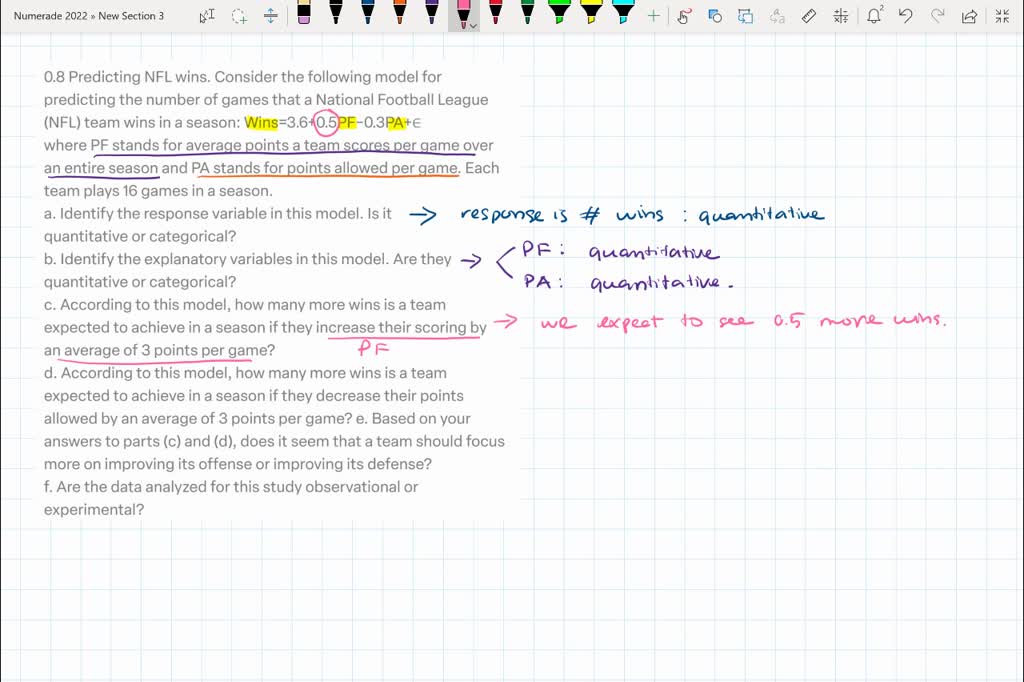 Numerade 2022 » New Section 3
2
0.8 Predicting NFL wins. Consider the following model for
predicting the number of games that a National Football League
(NFL) team wins in a season: Wins=3.6+0.5PF−0.3PA+ϵ
where PF stands for average points a team scores per game over
an entire season and PA stands for points allowed per game. Each
team plays 16 games in a season.
a. Identify the response variable in this model. Is it → response is # wins : quantitative
quantitative or categorical?
b. Identify the explanatory variables in this model. Are they → PF : quantitative
quantitative or categorical? PA : quantitative.
c. According to this model, how many more wins is a team
expected to achieve in a season if they increase their scoring by → we expect to see 0.5 more wins.
an average of 3 points per game? PF
d. According to this model, how many more wins is a team
expected to achieve in a season if they decrease their points
allowed by an average of 3 points per game? e. Based on your
answers to parts (c) and (d), does it seem that a team should focus
more on improving its offense or improving its defense?
f. Are the data analyzed for this study observational or
experimental?